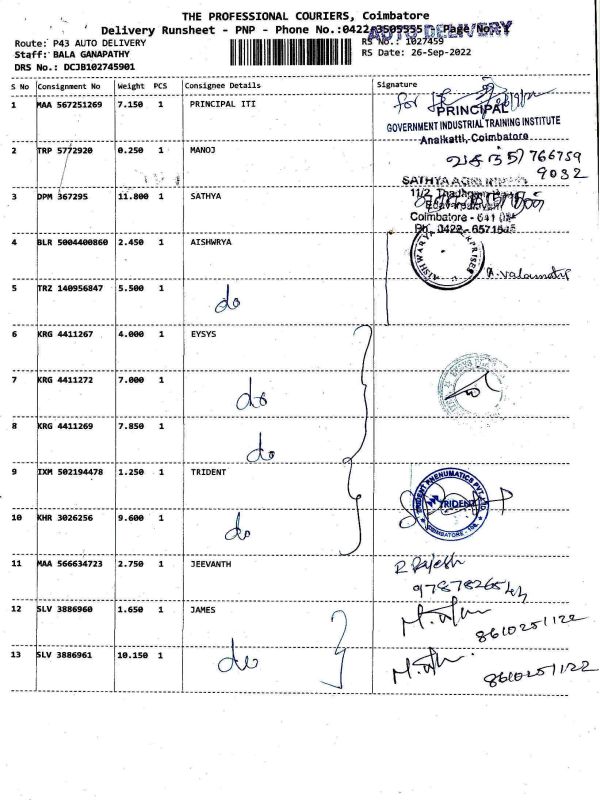 THE PROFESSIONAL COURIERS, Coimbatore
Delivery Runsheet - PNP - Phone No.:0422-3505555 Page No.:
AUTO DELIVERY
Route: P43 AUTO DELIVERY RS No.: 1027459
Staff: BALA GANAPATHY RS Date: 26-Sep-2022
DRS No.: DCJB102745901
S No Consignment No Weight PCS Consignee Details Signature
1 MAA 567251269 7.150 1 PRINCIPAL ITI
for
PRINCIPAL
GOVERNMENT INDUSTRIAL TRAINING INSTITUTE
Anaikatti, Coimbatore
2 TRP 5772920 0.250 1 MANOJ
766759
9032
3 DPM 367295 11.800 1 SATHYA
11/2,
Coimbatore - 641
Ph. 0422-
4 BLR 5004400860 2.450 1 AISHWRYA
AISHWARYA ENTERPRISES
5 TRZ 140956847 5.500 1 do
6 KRG 4411267 4.000 1 EYSYS
7 KRG 4411272 7.000 1 do
8 KRG 4411269 7.850 1 do
9 IXM 502194478 1.250 1 TRIDENT
TRIDENT PNEUMATICS PVT. LTD.
TRIDENT
COIMBATORE
10 KHR 3026256 9.600 1 do
11 MAA 566634723 2.750 1 JEEVANTH
R Rajesh
12 SLV 3886960 1.650 1 JAMES
8610251122
13 SLV 3886961 10.150 1 do
8610251122